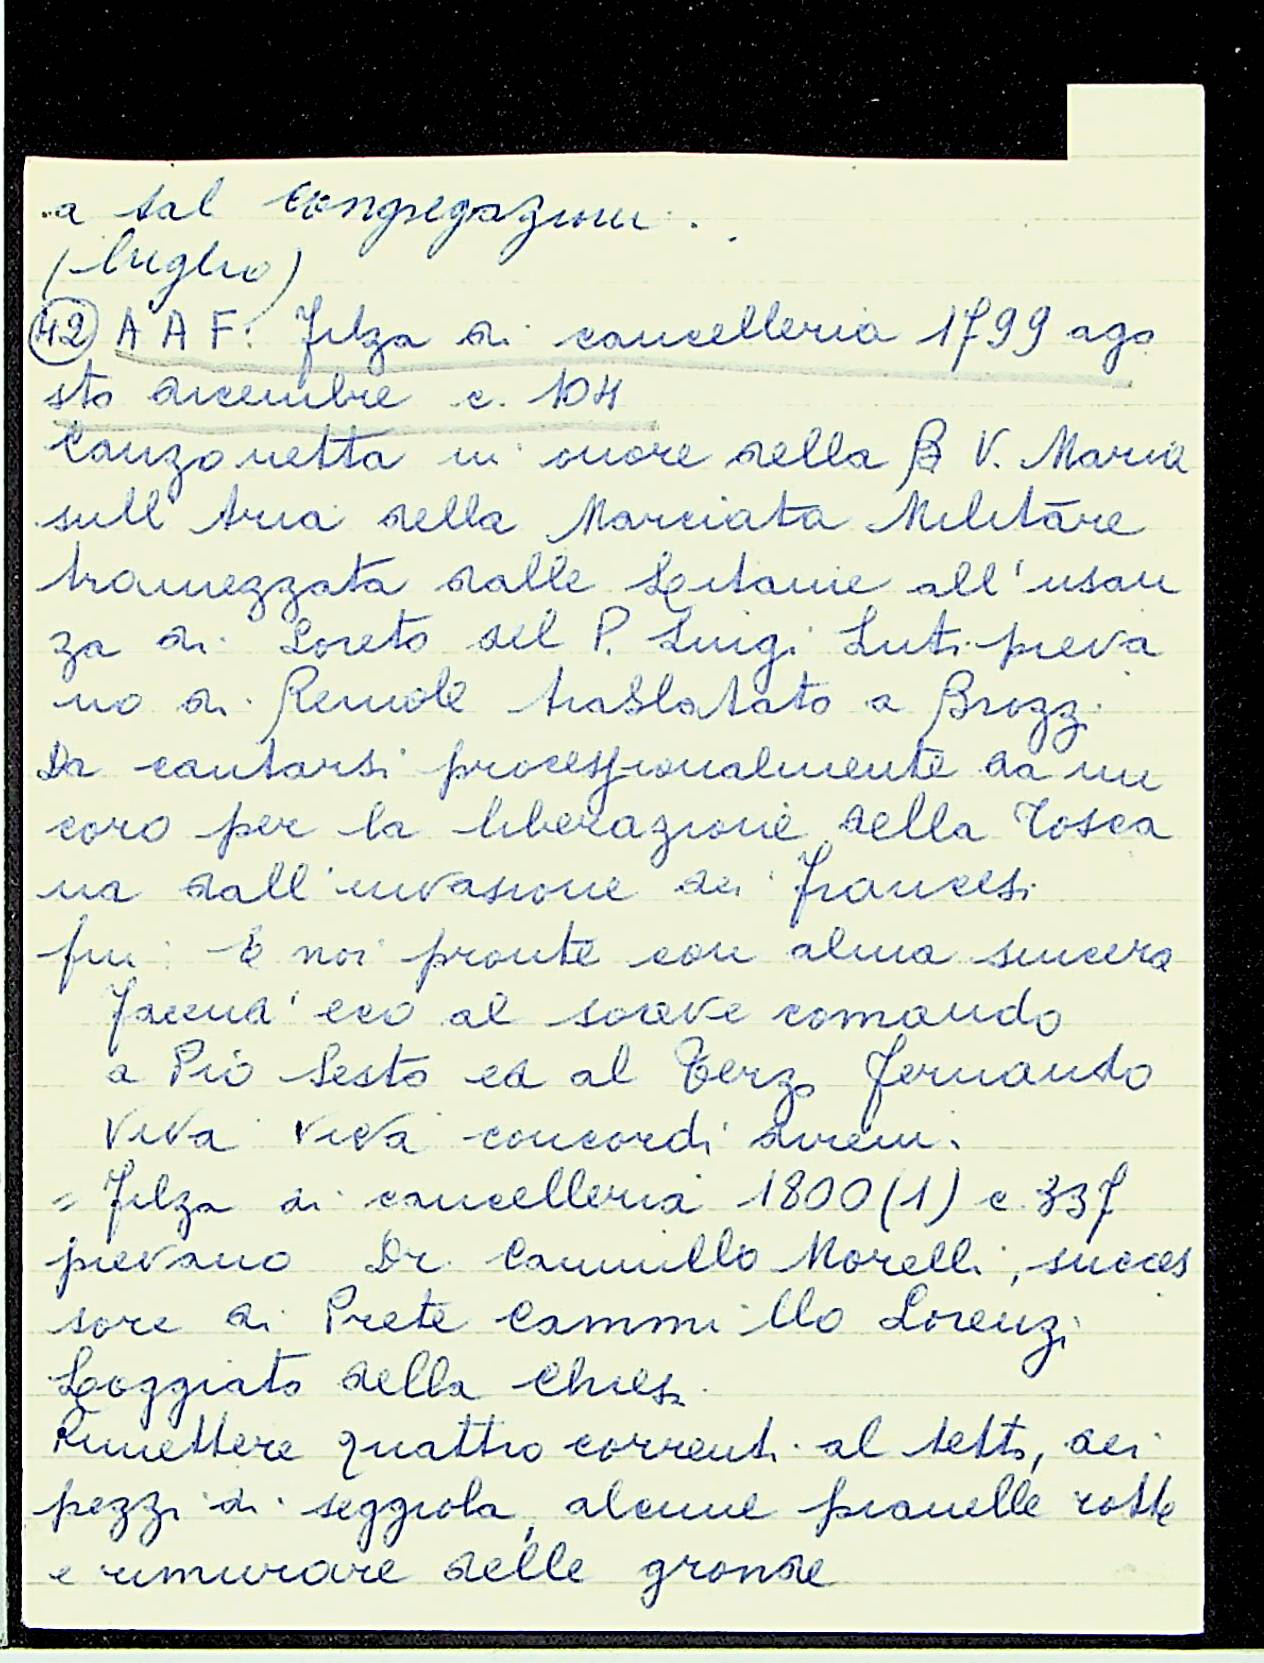 a tal congregazione.
(luglio)
42 A A F. Filza di cancelleria 1799 ago
sto dicembre c. 104
Canzonetta in onore della B V. Maria
sull'Aria della Marciata Militare
tramezzata dalle Letanie all'usan
za di Loreto del P. Luigi Luti pieva
no di Remole traslatato a Brozzi
Da cantarsi processionalmente da un
coro per la liberazione della Tosca
na dall'invasione dei Francesi
fin: E noi pronte con alma sincera
Facend'eco al soave comando
a Pio Sesto ed al Terzo Fernando
Viva viva concordi direm.
= Filza di cancelleria 1800 (1) c. 337
pievano Dr. Cammillo Morelli, succes
sore di Prete Cammillo Lorenzi
Loggiato della Chiesa
Rimettere quattro correnti al tetto, dei
pezzi di seggiola, alcune pianelle rotte
e rimurare delle gronde